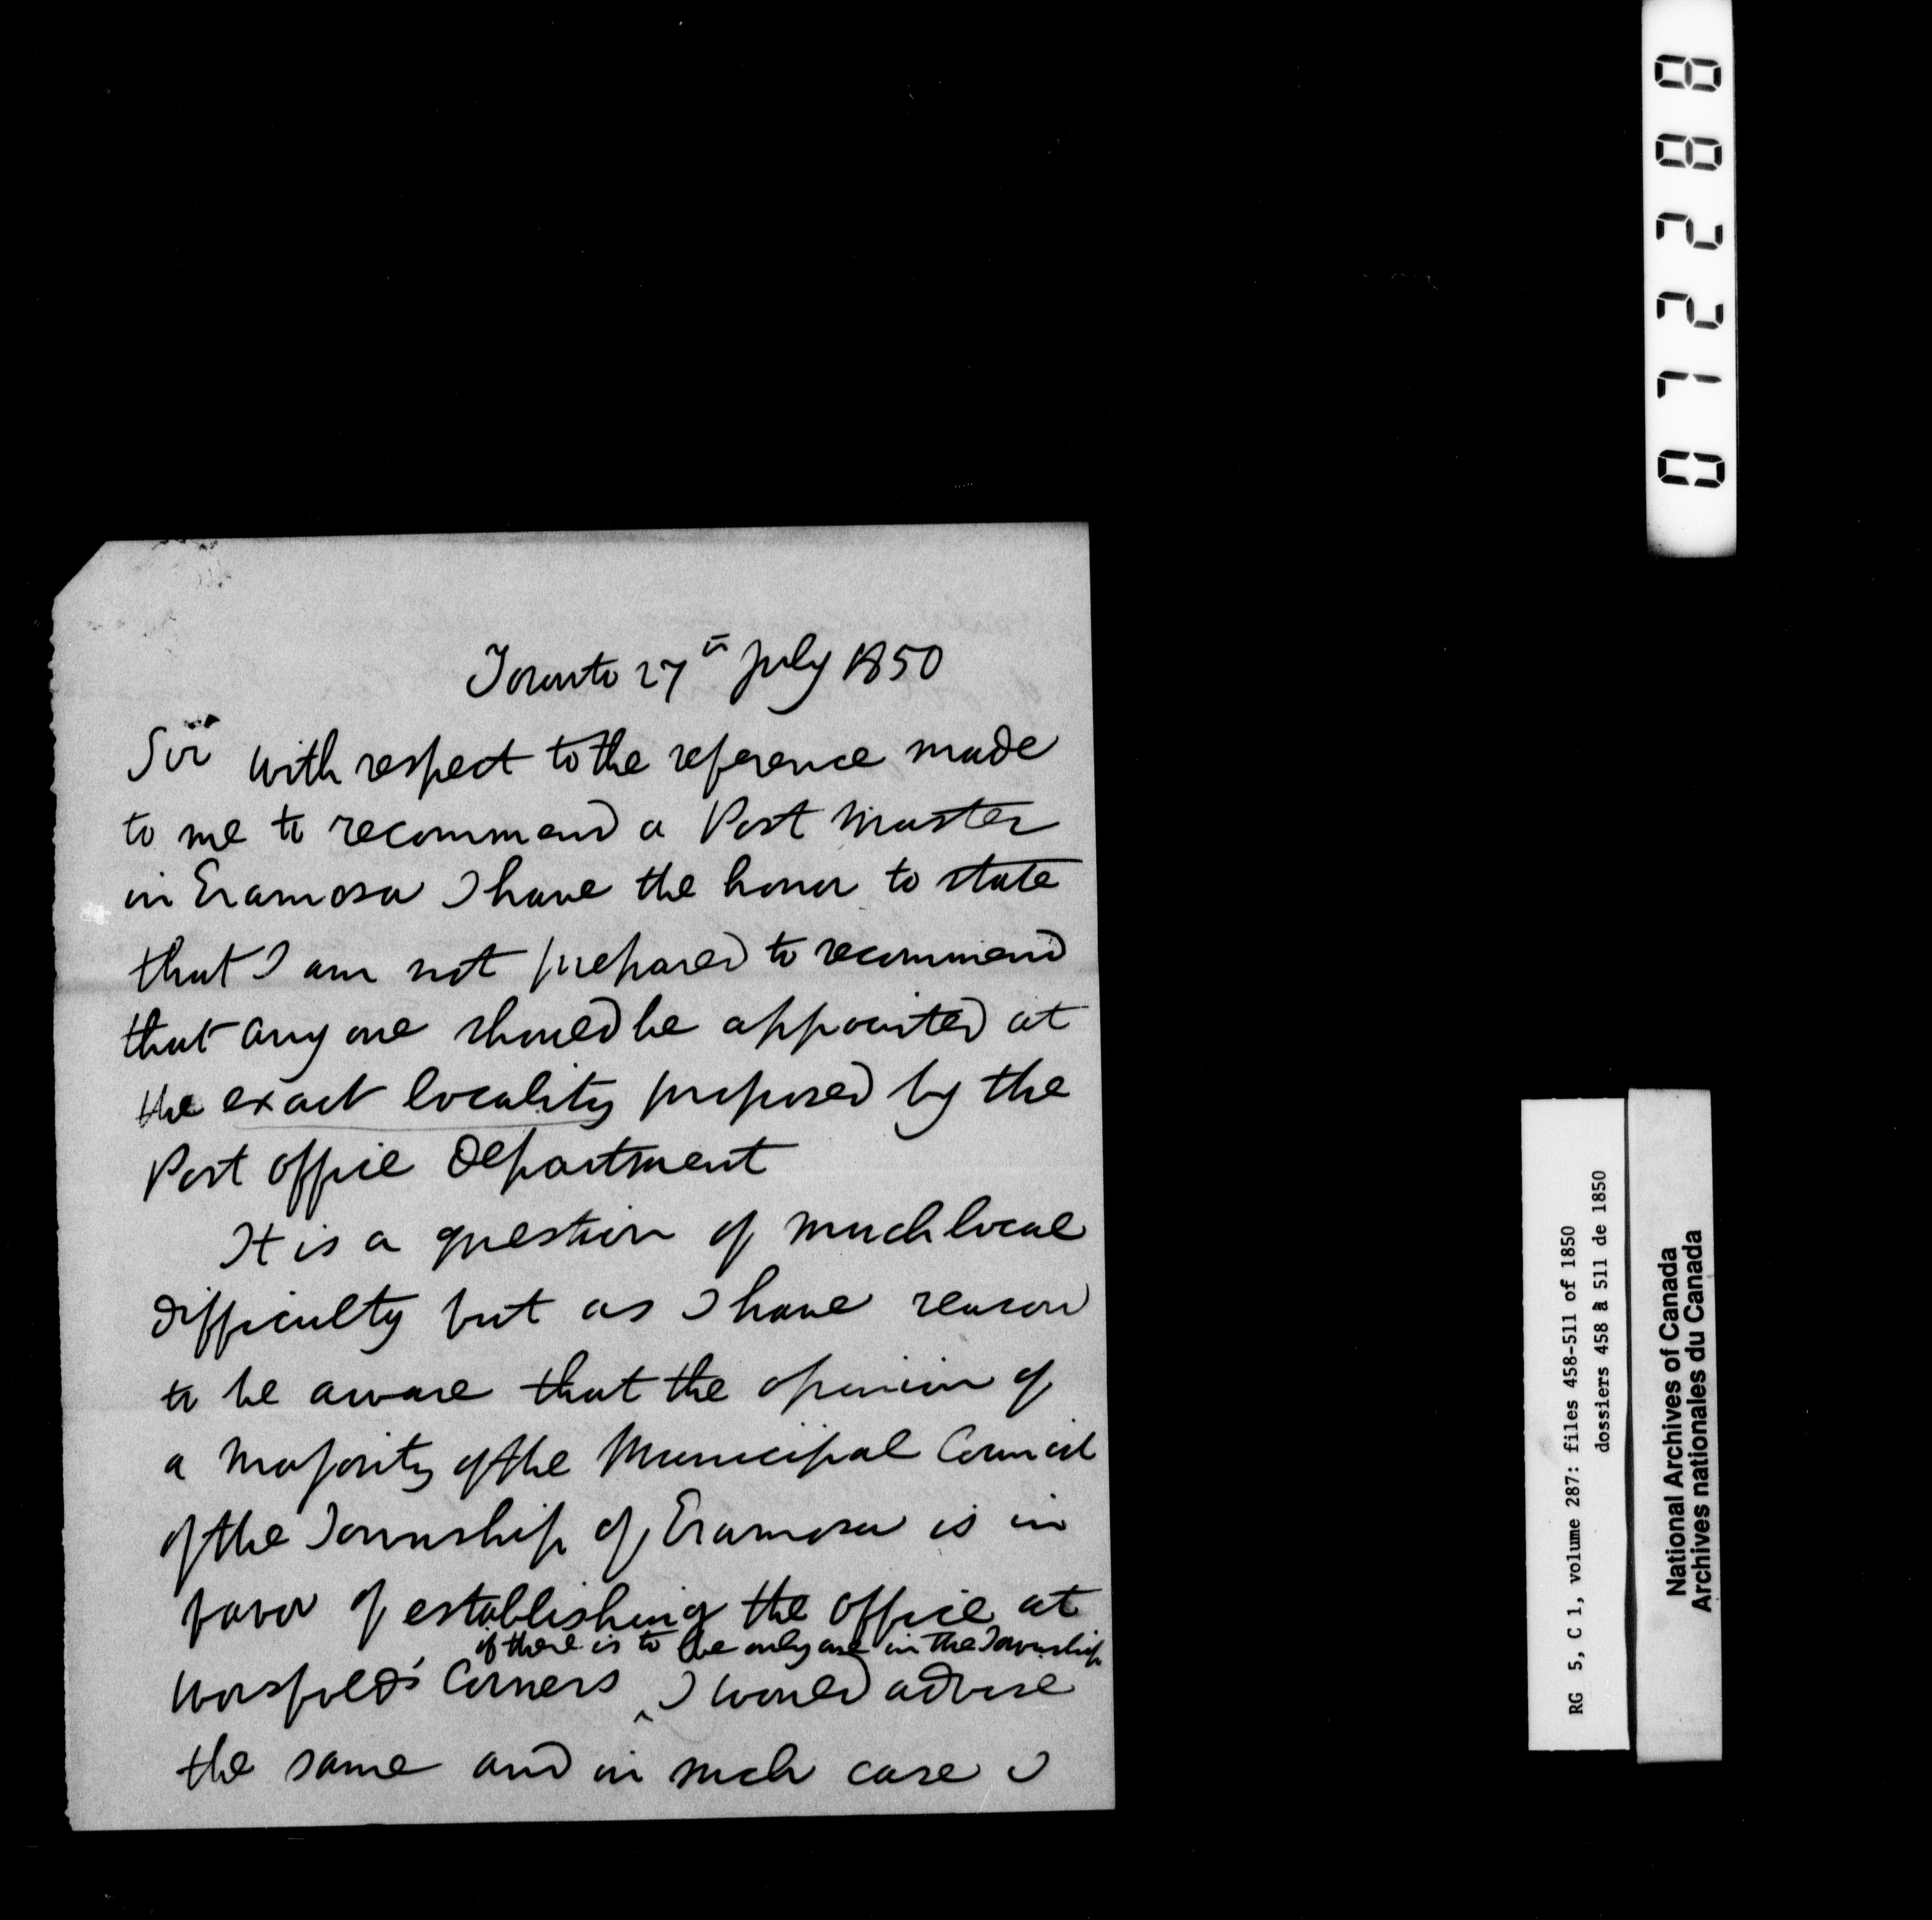 Toronto 27th July 1850
Sir With respect to the reference made
to me to recommend a Post Master
in Eramosa I have the honor to state
that I am not prepared to recommend
that any one should be appointed at
the exact locality proposed by the
Post office Department
It is a question of much local
difficulty but as I have reason
to be aware that the opinion of
a Majority of the Municipal Council
of the Township of Eramosa is in
favor of establishing the office at
if there is to be only one in the Township
Worsfold's Corners ^ I would advise
the same and in such case I
072288
RG 5, C 1, volume 287: files 458-511 of 1850
dossiers 458 à 511 de 1850
National Archives of Canada
Archives nationales du Canada